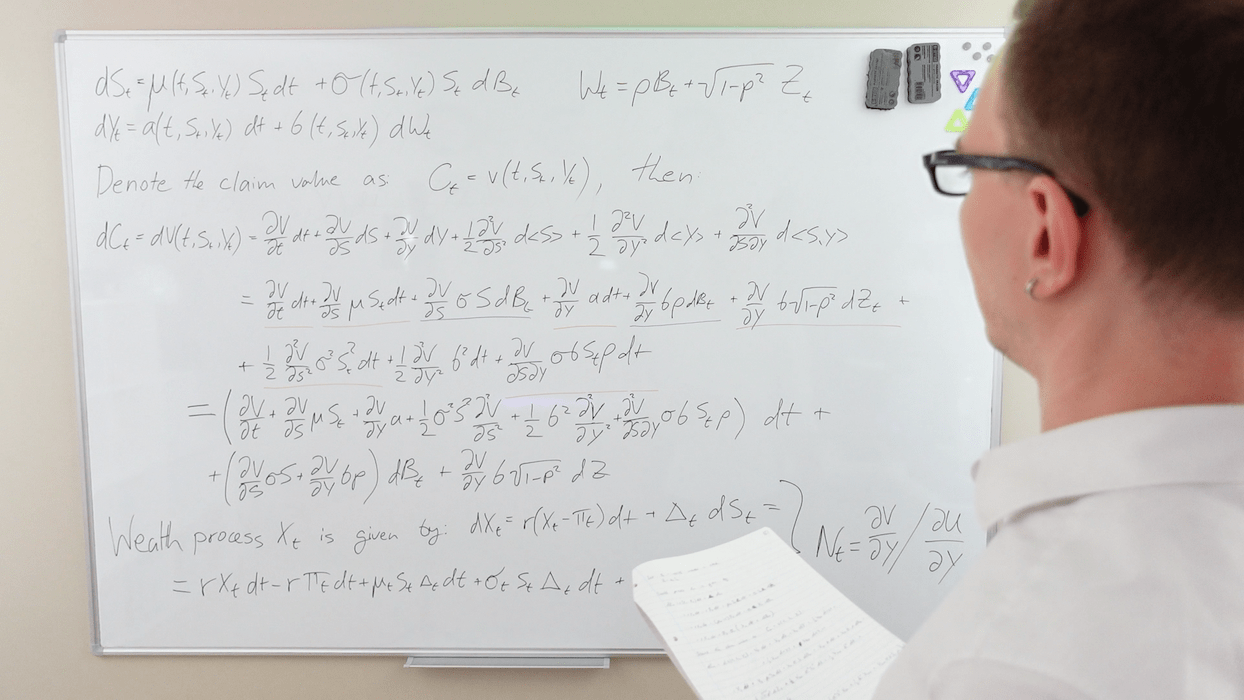 dSₜ = μ(t,Sₜ,Yₜ) Sₜ dt + σ(t,Sₜ,Yₜ) Sₜ dBₜ     Wₜ = ρBₜ + √(1-ρ²) Zₜ
dYₜ = a(t,Sₜ,Yₜ) dt + b(t,Sₜ,Yₜ) dWₜ
Denote the claim value as: Cₜ = v(t,Sₜ,Yₜ), then:
dCₜ = dV(t,Sₜ,Yₜ) = ∂V/∂t dt + ∂V/∂S dS + ∂V/∂y dY + 1/2 ∂²V/∂S² d<S> + 1/2 ∂²V/∂y² d<Y> + ∂²V/∂S∂y d<S,Y>
= ∂V/∂t dt + ∂V/∂S μSₜdt + ∂V/∂S σS dBₜ + ∂V/∂y a dt + ∂V/∂y bρdBₜ + ∂V/∂y b√(1-ρ²) dZₜ +
+ 1/2 ∂²V/∂S² σ²Sₜ² dt + 1/2 ∂²V/∂y² b² dt + ∂²V/∂S∂y σbSₜρ dt
= (∂V/∂t + ∂V/∂S μSₜ + ∂V/∂y a + 1/2 σ²S² ∂²V/∂S² + 1/2 b² ∂²V/∂y² + ∂²V/∂S∂y σb Sₜρ) dt +
+ (∂V/∂S σS + ∂V/∂y bρ) dBₜ + ∂V/∂y b√(1-ρ²) dZ
Weath process Xₜ is given by: dXₜ = r(Xₜ-πₜ)dt + Δₜ dSₜ = } Nₜ = ∂V/∂y / ∂u/∂y
= rXₜ dt - rπₜ dt + μₜSₜΔₜdt + σₜ Sₜ Δₜ dt +